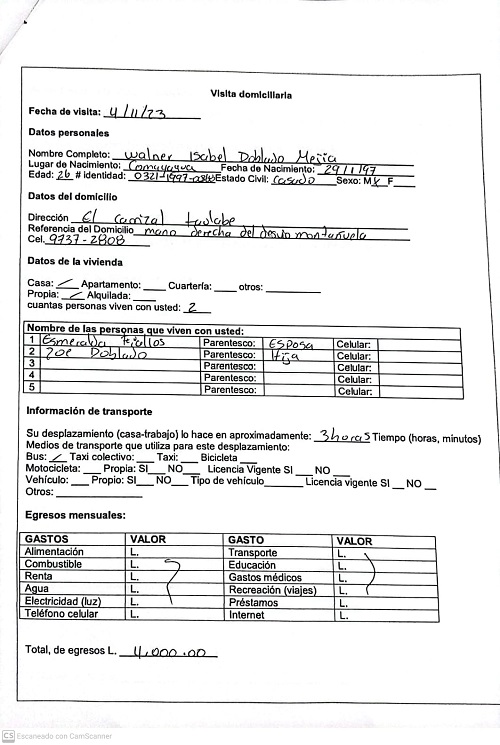 Visita domiciliaria
Fecha de visita: 4/11/23
Datos personales
Nombre Completo: Walner Isabel Doblado Mejia
Lugar de Nacimiento: Comayagua Fecha de Nacimiento: 29/1/97
Edad: 26 # identidad: 0321-1997- Estado Civil: Casado Sexo: M x F
Datos del domicilio
Dirección El Carrizal taulabe
Referencia del Domicilio mano derecha del desvio montañuela
Cel. 9737-2808
Datos de la vivienda
Casa: ✓ Apartamento: ____ Cuartería: ____ otros: ____
Propia: ✓ Alquilada: ____
cuantas personas viven con usted: 2
Nombre de las personas que viven con usted:
1 Esmeralda Fiallos Parentesco: ESPOSA Celular:
2 zoe Doblado Parentesco: Hija Celular:
3 Parentesco: Celular:
4 Parentesco: Celular:
5 Parentesco: Celular:
Información de transporte
Su desplazamiento (casa-trabajo) lo hace en aproximadamente: 3 horas Tiempo (horas, minutos)
Medios de transporte que utiliza para este desplazamiento:
Bus: ✓ Taxi colectivo: ___ Taxi: ___ Bicicleta ___
Motocicleta: ___ Propia: SI___ NO___ Licencia Vigente SI ___ NO ___
Vehículo: ___ Propio: SI___ NO___ Tipo de vehículo______ Licencia vigente SI __ NO __
Otros: ____________
Egresos mensuales:
GASTOS VALOR GASTO VALOR
Alimentación L. Transporte L.
Combustible L. Educación L.
Renta L. Gastos médicos L.
Agua L. Recreación (viajes) L.
Electricidad (luz) L. Préstamos L.
Teléfono celular L. Internet L.
Total, de egresos L. 4,000.00
CS Escaneado con CamScanner